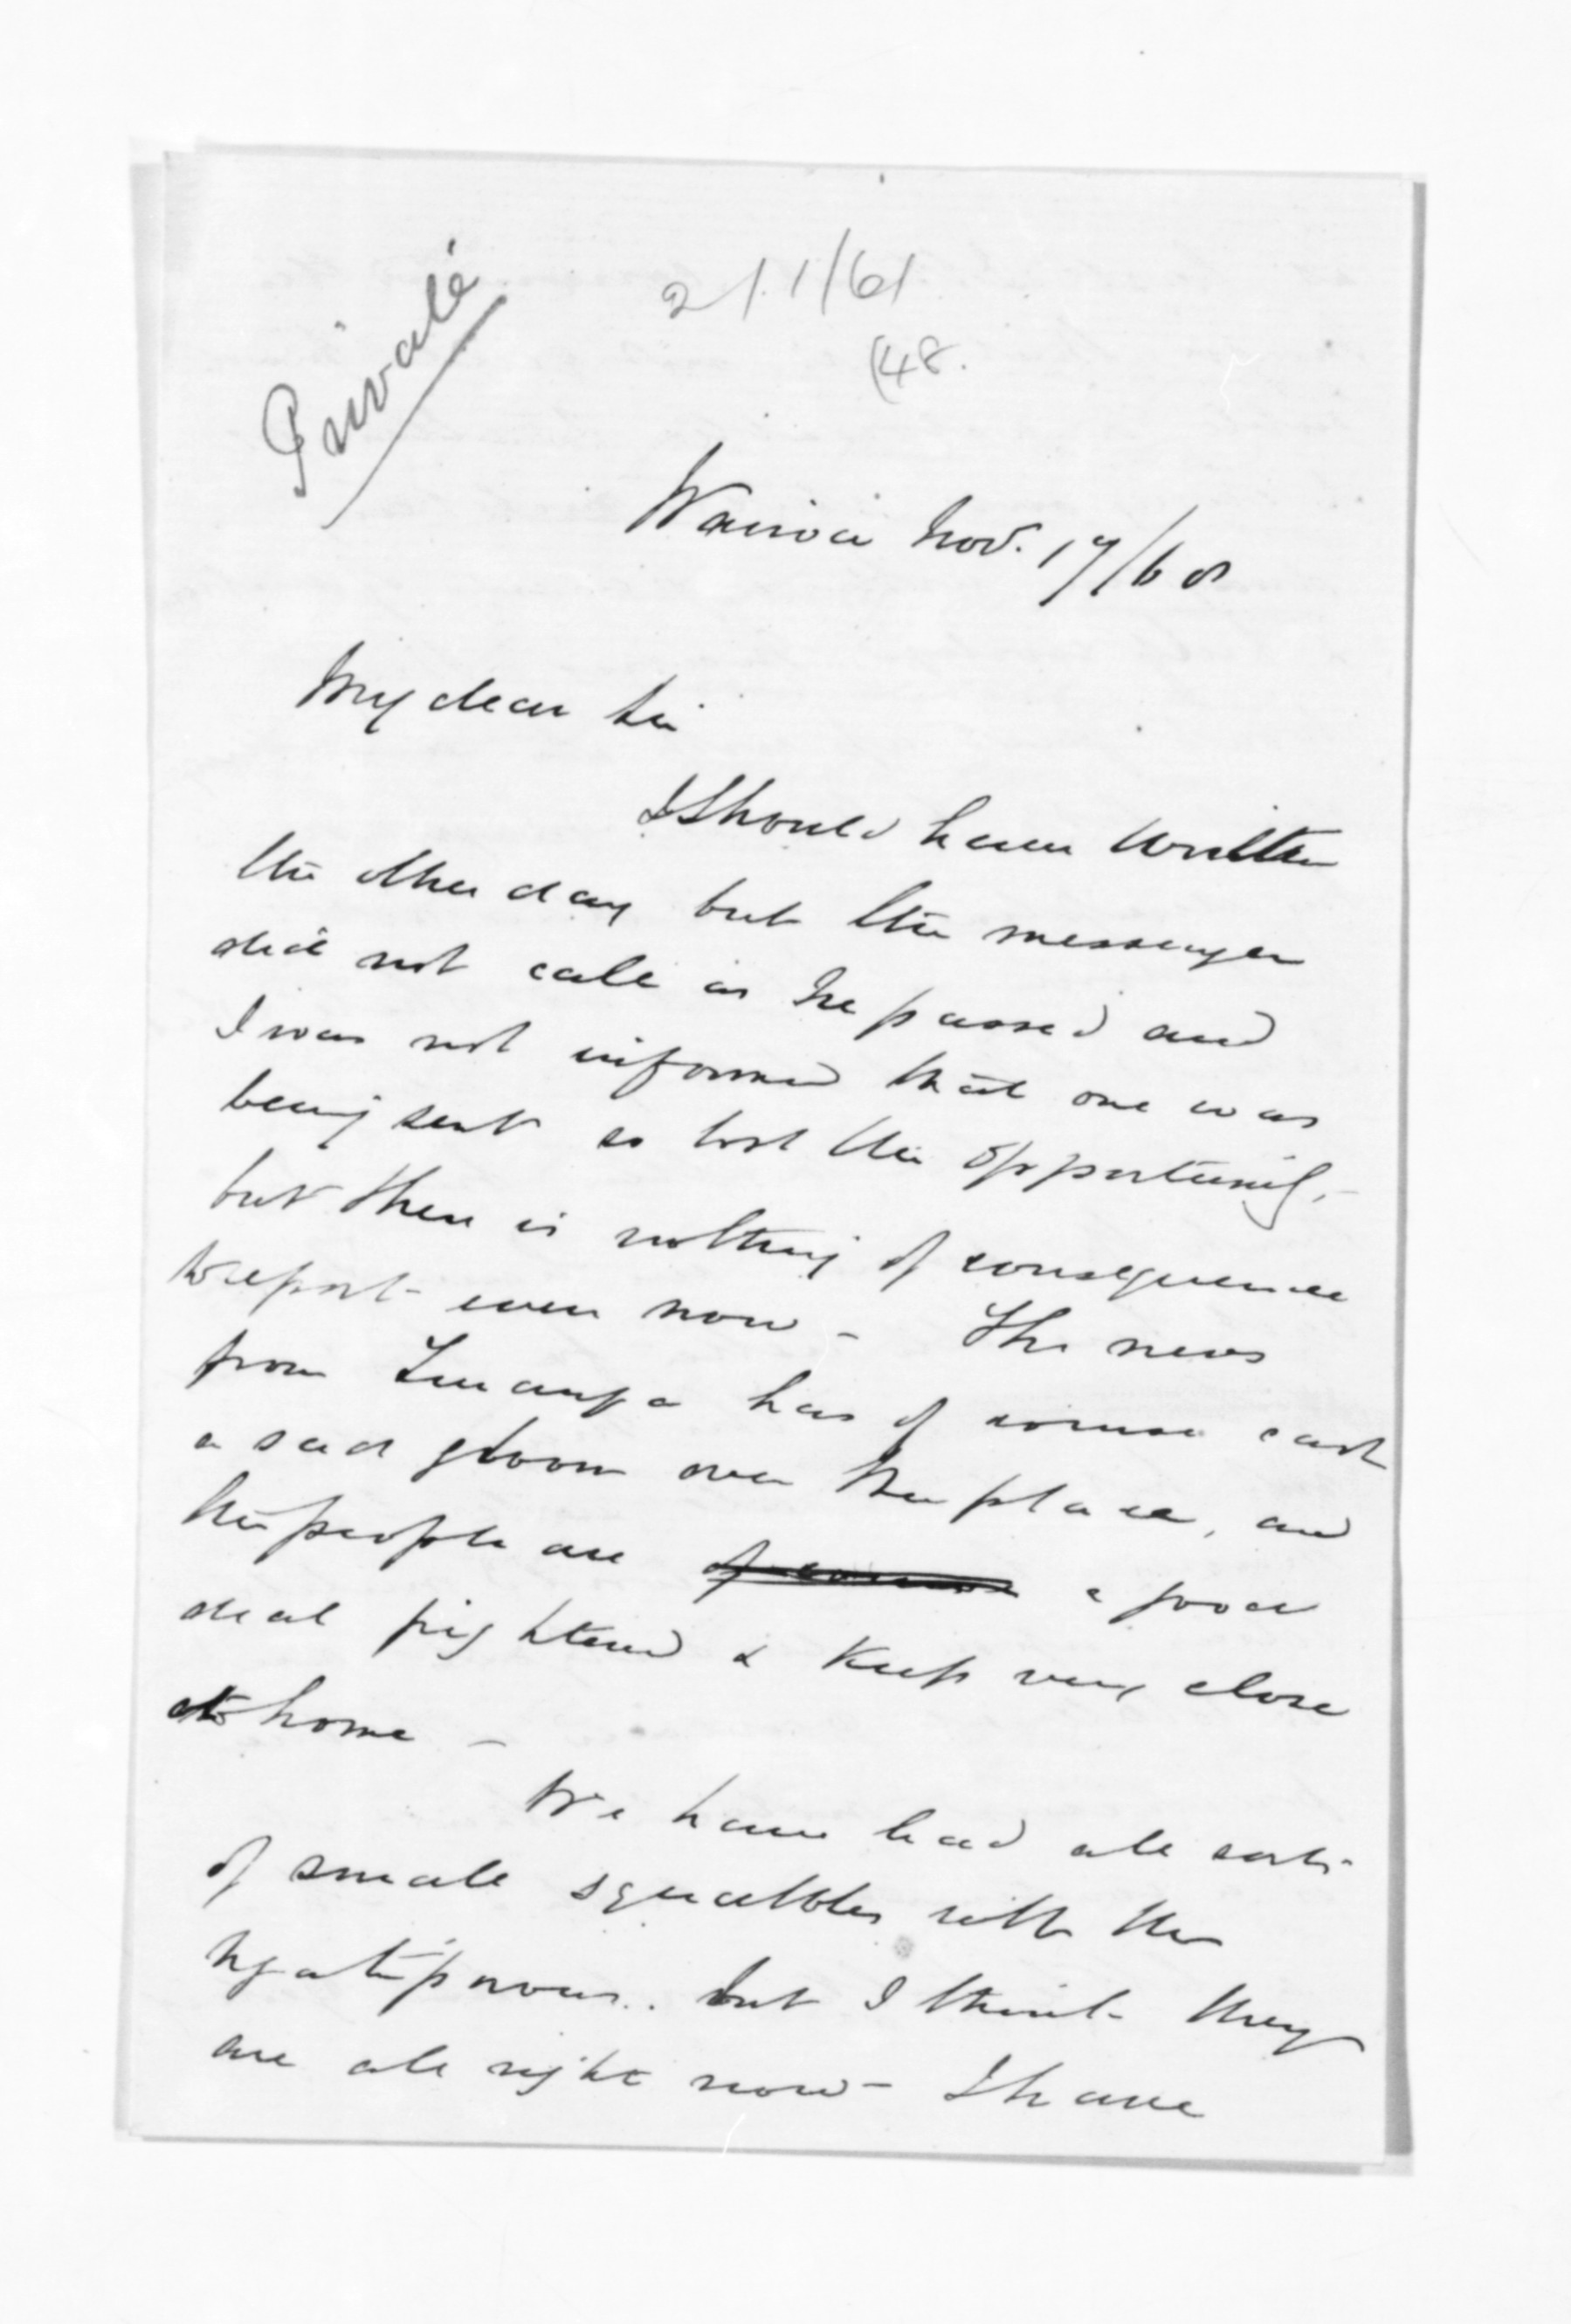 Private
211/61
(48.
Wairoa Nov. 17/68
My dear Sir
I should have written
the other day but the messenger
did not call as he passed and
I was not informed that one was
being sent so lost the opportunity, -
but there is nothing of consequence
to report even now - The news
from Turanga has of course cast
a sad gloom over the place, and
the people are of course a good
deal frightened & keep very close
at home -
We have had all sorts
of small squabbles with the
Ngatiporou.. but I think they
are all right now - I have